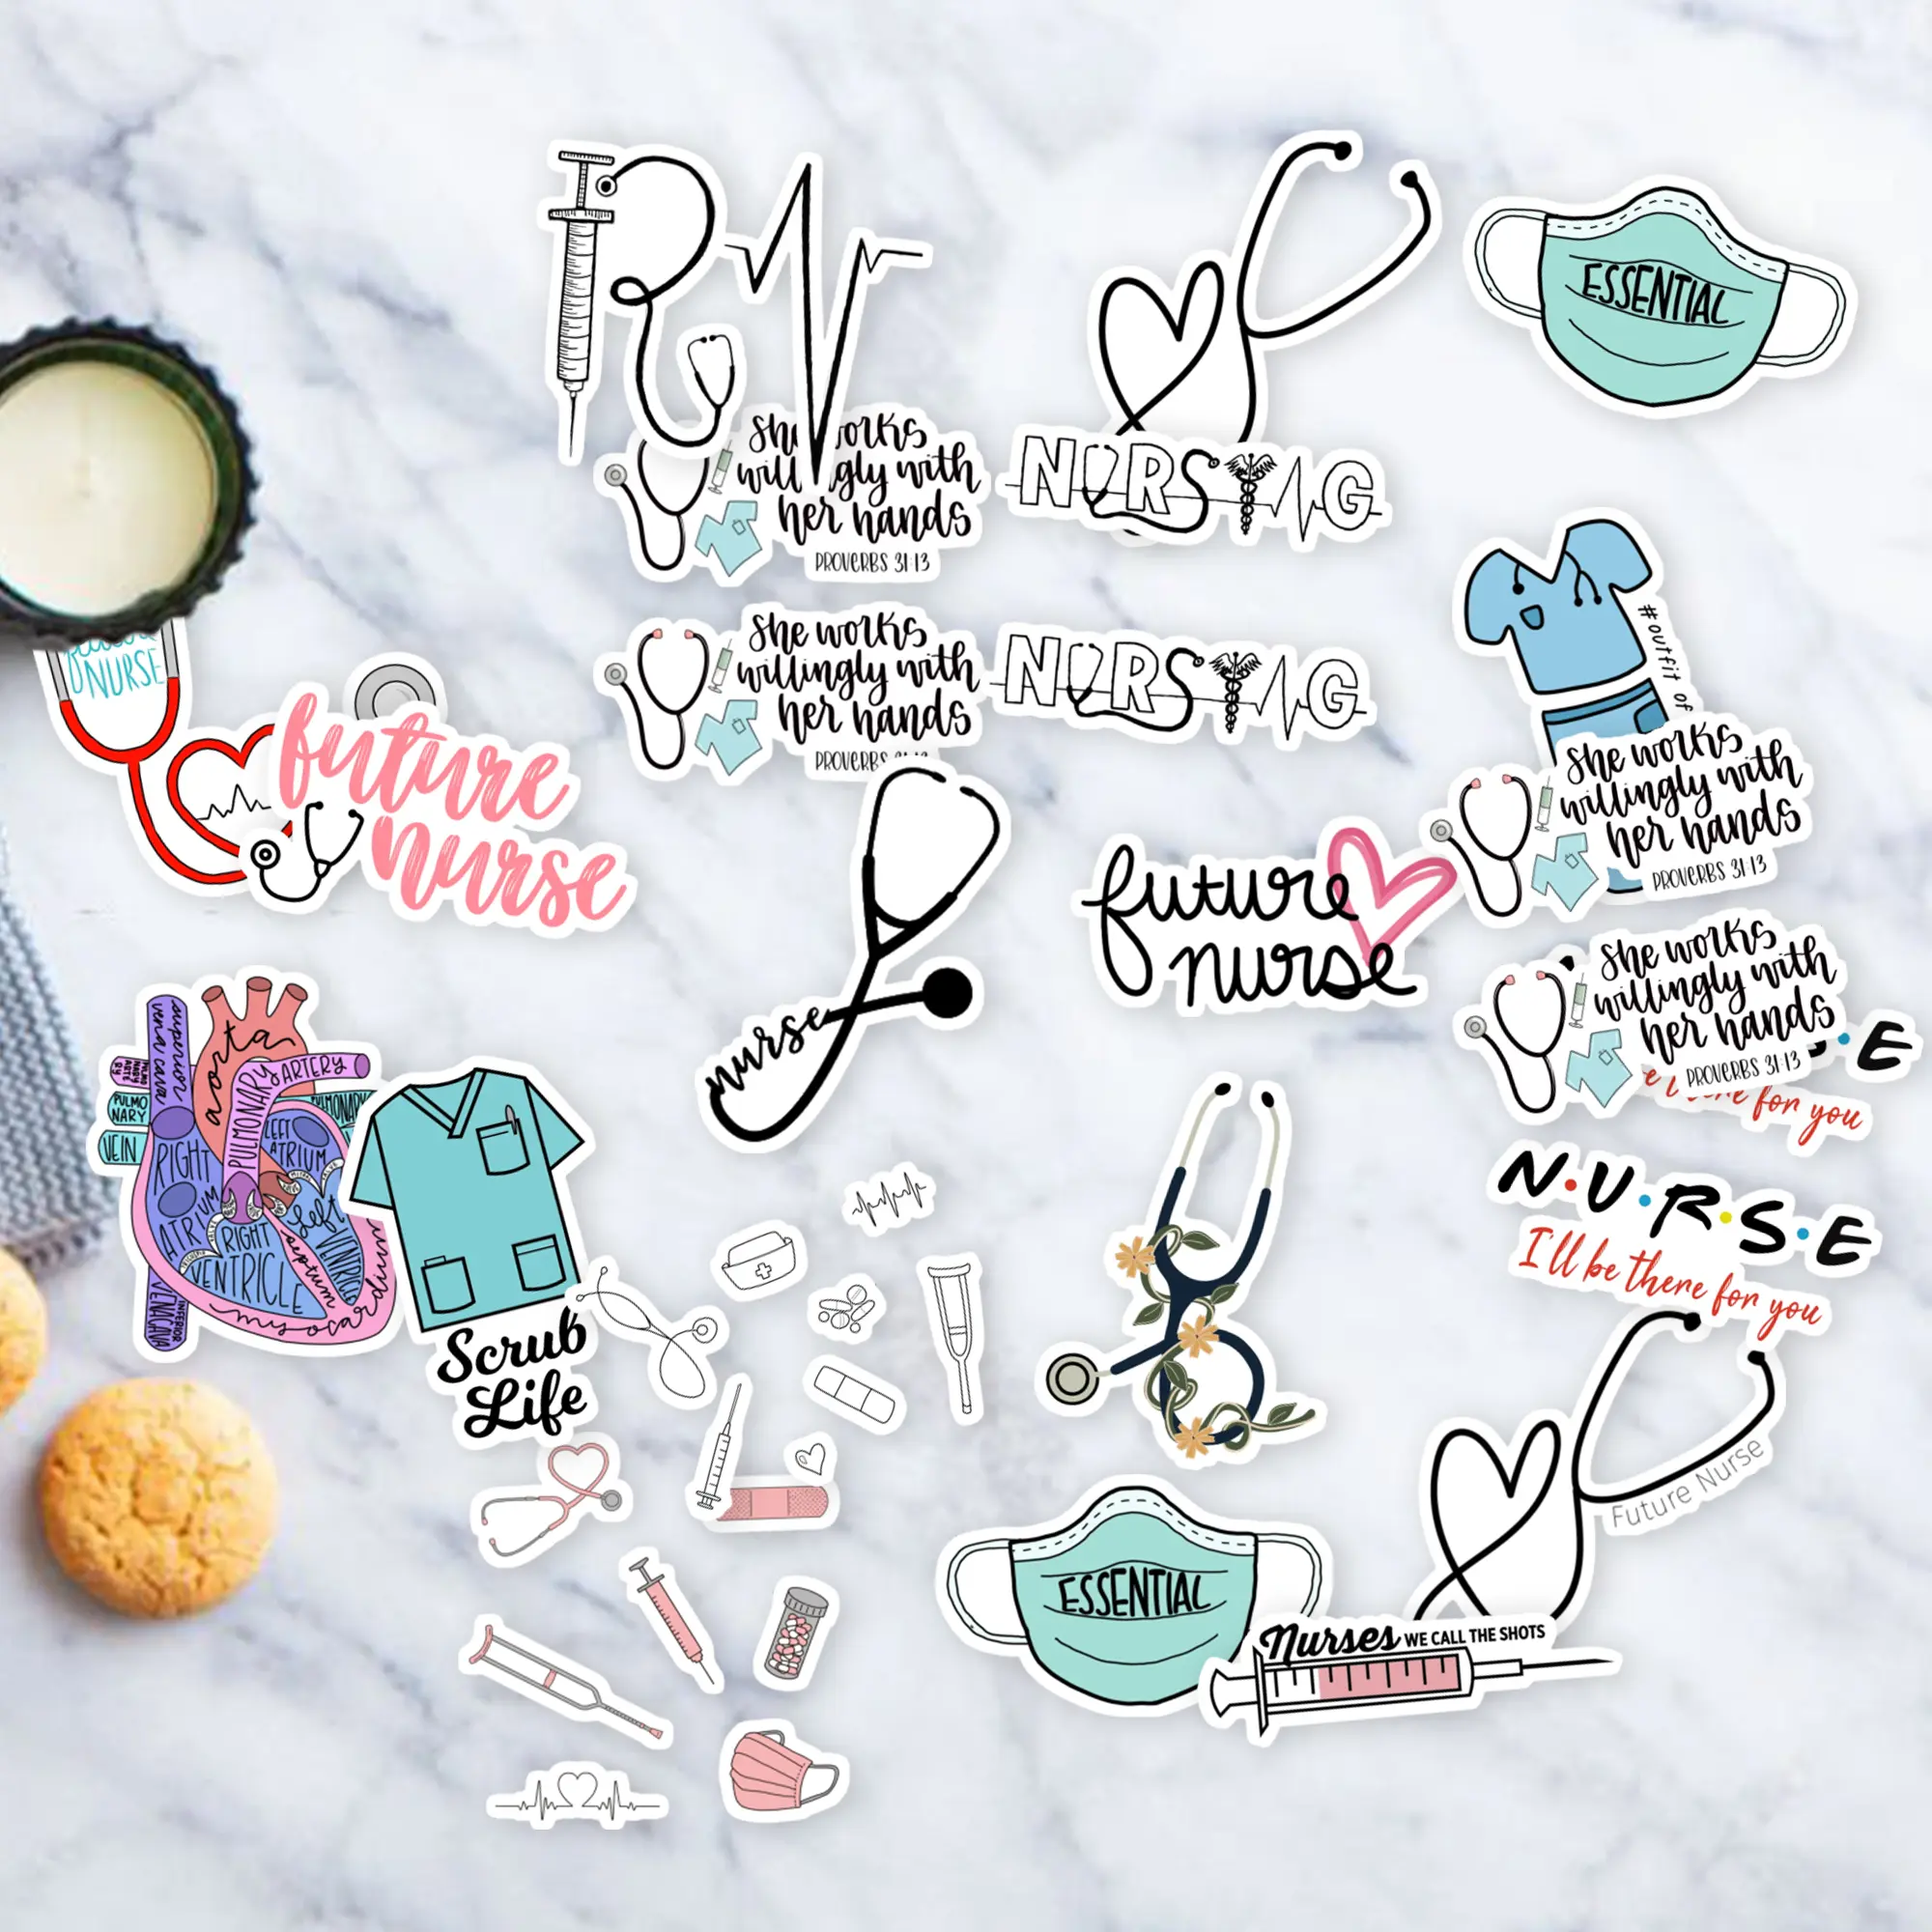 ESSENTIAL
She works
willingly with
her hands
PROVERBS 31:13
NURSING
#outfit of
She works
willingly with
her hands
PROVERBS
NURSING
NURSE
future
nurse
She works
willingly with
her hands
PROVERBS 31:13
future
nurse
nurse
She works
willingly with
her hands
PROVERBS 31:13
E
for you
N.U.R.S.E
I'll be there for you
superior
vena cava
aorta
PULMONARY ARTERY
PULMONARY
VEIN
PULMONARY
RIGHT
ATRIUM
LEFT
ATRIUM
RIGHT
VENTRICLE
Left
VENTRICLE
septum
myocardium
INFERIOR
VENACAVA
Scrub
Life
Future Nurse
ESSENTIAL
Nurses WE CALL THE SHOTS